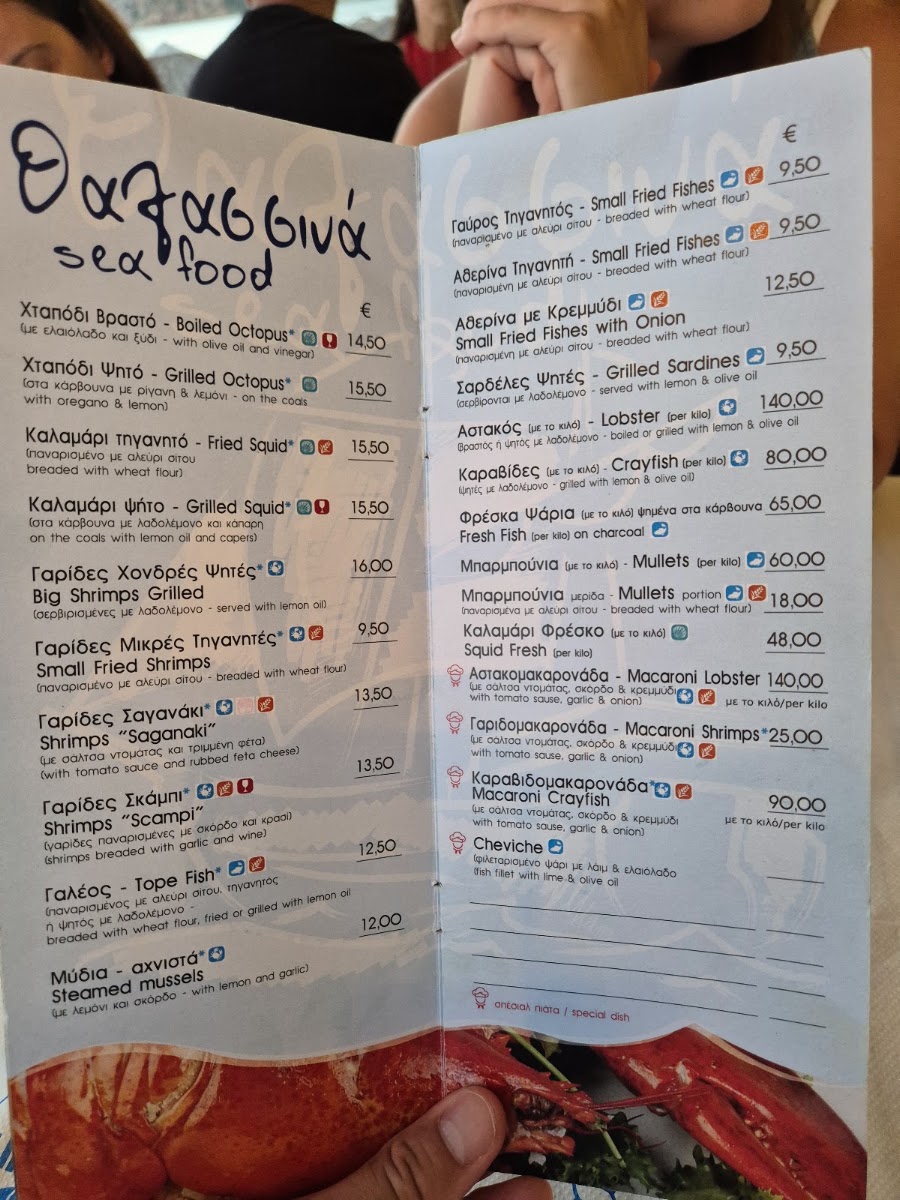 Θαλασσινά
sea food
€
Χταπόδι Βραστό - Boiled Octopus* 14,50
(με ελαιόλαδο και ξύδι - with olive oil and vinegar)
Χταπόδι Ψητό - Grilled Octopus* 15,50
(στα κάρβουνα με ρίγανη & λεμόνι - on the coals
with oregano & lemon)
Καλαμάρι τηγαντό - Fried Squid* 15,50
(παναρισμένο με αλεύρι σίτου
breaded with wheat flour)
Καλαμάρι ψήτο - Grilled Squid* 15,50
(στα κάρβουνα με λαδολέμονο και κάπαρη
on the coals with lemon oil and capers)
Γαρίδες Χονδρές Ψητές* 16,00
Big Shrimps Grilled
(σερβιρισμένες με λαδολέμονο - served with lemon oil)
Γαρίδες Μικρές Τηγανητές* 9,50
Small Fried Shrimps
(παναρισμένο με αλεύρι σίτου - breaded with wheat flour)
Γαρίδες Σαγανάκι* 13,50
Shrimps "Saganaki"
(με σάλτσα ντομάτας και τριμμένη φέτα)
(with tomato sauce and rubbed feta cheese)
Γαρίδες Σκάμπι* 13,50
Shrimps "Scampi"
(γαρίδες παναρισμένες με σκόρδο και κρασί)
(shrimps breaded with garlic and wine)
Γαλέος - Tope Fish* 12,50
(παναρισμένος με αλεύρι σίτου, τηγανητός
ή ψητός με λαδολέμονο -
breaded with wheat flour, fried or grilled with lemon oil
Μύδια - αχνιστά* 12,00
Steamed mussels
(με λεμόνι και σκόρδο - with lemon and garlic)
€
Γαύρος Τηγανητός - Small Fried Fishes 9,50
(παναρισμένο με αλεύρι σίτου - breaded with wheat flour)
Αθερίνα Τηγανητή - Small Fried Fishes 9,50
(παναρισμένη με αλεύρι σίτου - breaded with wheat flour)
Αθερίνα με Κρεμμύδι 12,50
Small Fried Fishes with Onion
(παναρισμένη με αλεύρι σίτου - breaded with wheat flour)
Σαρδέλες Ψητές - Grilled Sardines 9,50
(σερβίρονται με λαδολέμονο - served with lemon & olive oil
Αστακός (με το κιλό) - Lobster (per kilo) 140,00
(βραστός ή ψητός με λαδολέμονο - boiled or grilled with lemon & olive oil)
Καραβίδες (με το κιλό) - Crayfish (per kilo) 80,00
(ψητές με λαδολέμονο - grilled with lemon & olive oil)
Φρέσκα Ψάρια (με το κιλό) ψημένα στα κάρβουνα 65,00
Fresh Fish (per kilo) on charcoal
Μπαρμπούνια (με το κιλό) - Mullets (per kilo) 60,00
Μπαρμπούνια μερίδα - Mullets portion 18,00
(παναρισμένα με αλεύρι σίτου - breaded with wheat flour)
Καλαμάρι Φρέσκο (με το κιλό) 48,00
Squid Fresh (per kilo)
Αστακομακαρονάδα - Macaroni Lobster 140,00
(με σάλτσα ντομάτας, σκόρδο & κρεμμύδι
with tomato sause, garlic & onion) με το κιλό/per kilo
Γαριδομακαρονάδα - Macaroni Shrimps* 25,00
(με σάλτσα ντομάτας, σκόρδο & κρεμμύδι
with tomato sause, garlic & onion)
Καραβιδομακαρονάδα* 90,00
Macaroni Crayfish με το κιλό/per kilo
(με σάλτσα ντομάτας, σκόρδο & κρεμμύδι
with tomato sause, garlic & onion)
Cheviche
(φιλεταρισμένο ψάρι με λάιμ & ελαιόλαδο
(fish fillet with lime & olive oil
σπέσιαλ πιάτα / special dish